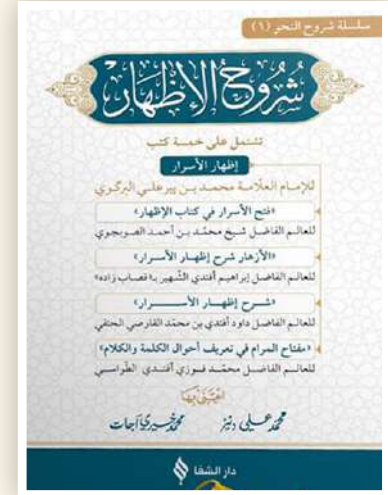 سلسلة شروح النحو (١)
شروح الإظهار
تشتمل على خمسة كتب
إظهار الأسرار
للإمام العلامة محمد بن بير علي البركوي
«فتح الأسرار في كتاب الإظهار»
للعالم الفاضل شيخ محمد بن أحمد الصوبجوي
«الأزهار شرح إظهار الأسرار»
للعالم الفاضل إبراهيم أفندي الشهير بـ«قصاب زاده»
«شرح إظهار الأسرار»
للعالم الفاضل داود أفندي بن محمد القارصي الحنفي
«مفتاح المرام في تعريف أحوال الكلمة والكلام»
للعالم الفاضل محمد فوزي أفندي الطواسي
اعتنى بها
محمد علي دنيز محمد خيري آجات
دار الشفا